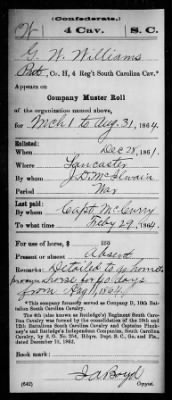 (Confederate.)
W 4 Cav. S. C.
G. W. Williams
Pvt, Co. H, 4 Reg't South Carolina Cav.*
Appears on
Company Muster Roll
of the organization named above,
for Mch 1 to Aug. 31, 1864.
Enlisted:
When Dec 28, 1861.
Where Lancaster
By whom J. D. McIlwain
Period War
Last paid:
By whom Capt McCurry
To what time Feby 29, 1864.
For use of horse, $
Present or absent Absent
Remarks: Detailed to go home &
horse for 40 days
from Aug
*This company formerly served as Company D, 10th Battalion South Carolina Cavalry.
The 4th (also known as Rutledge's) Regiment South Carolina Cavalry was formed by the consolidation of the 10th and 12th Battalions South Carolina Cavalry and Captains Pinckney's and Rutledge's Independent Companies, South Carolina Cavalry, by S. O. No. 254, Hdqrs. Dept. S. C., Ga. and Fla., dated December 16, 1862.
Book mark:
(642) J A Boyd
Copyist.